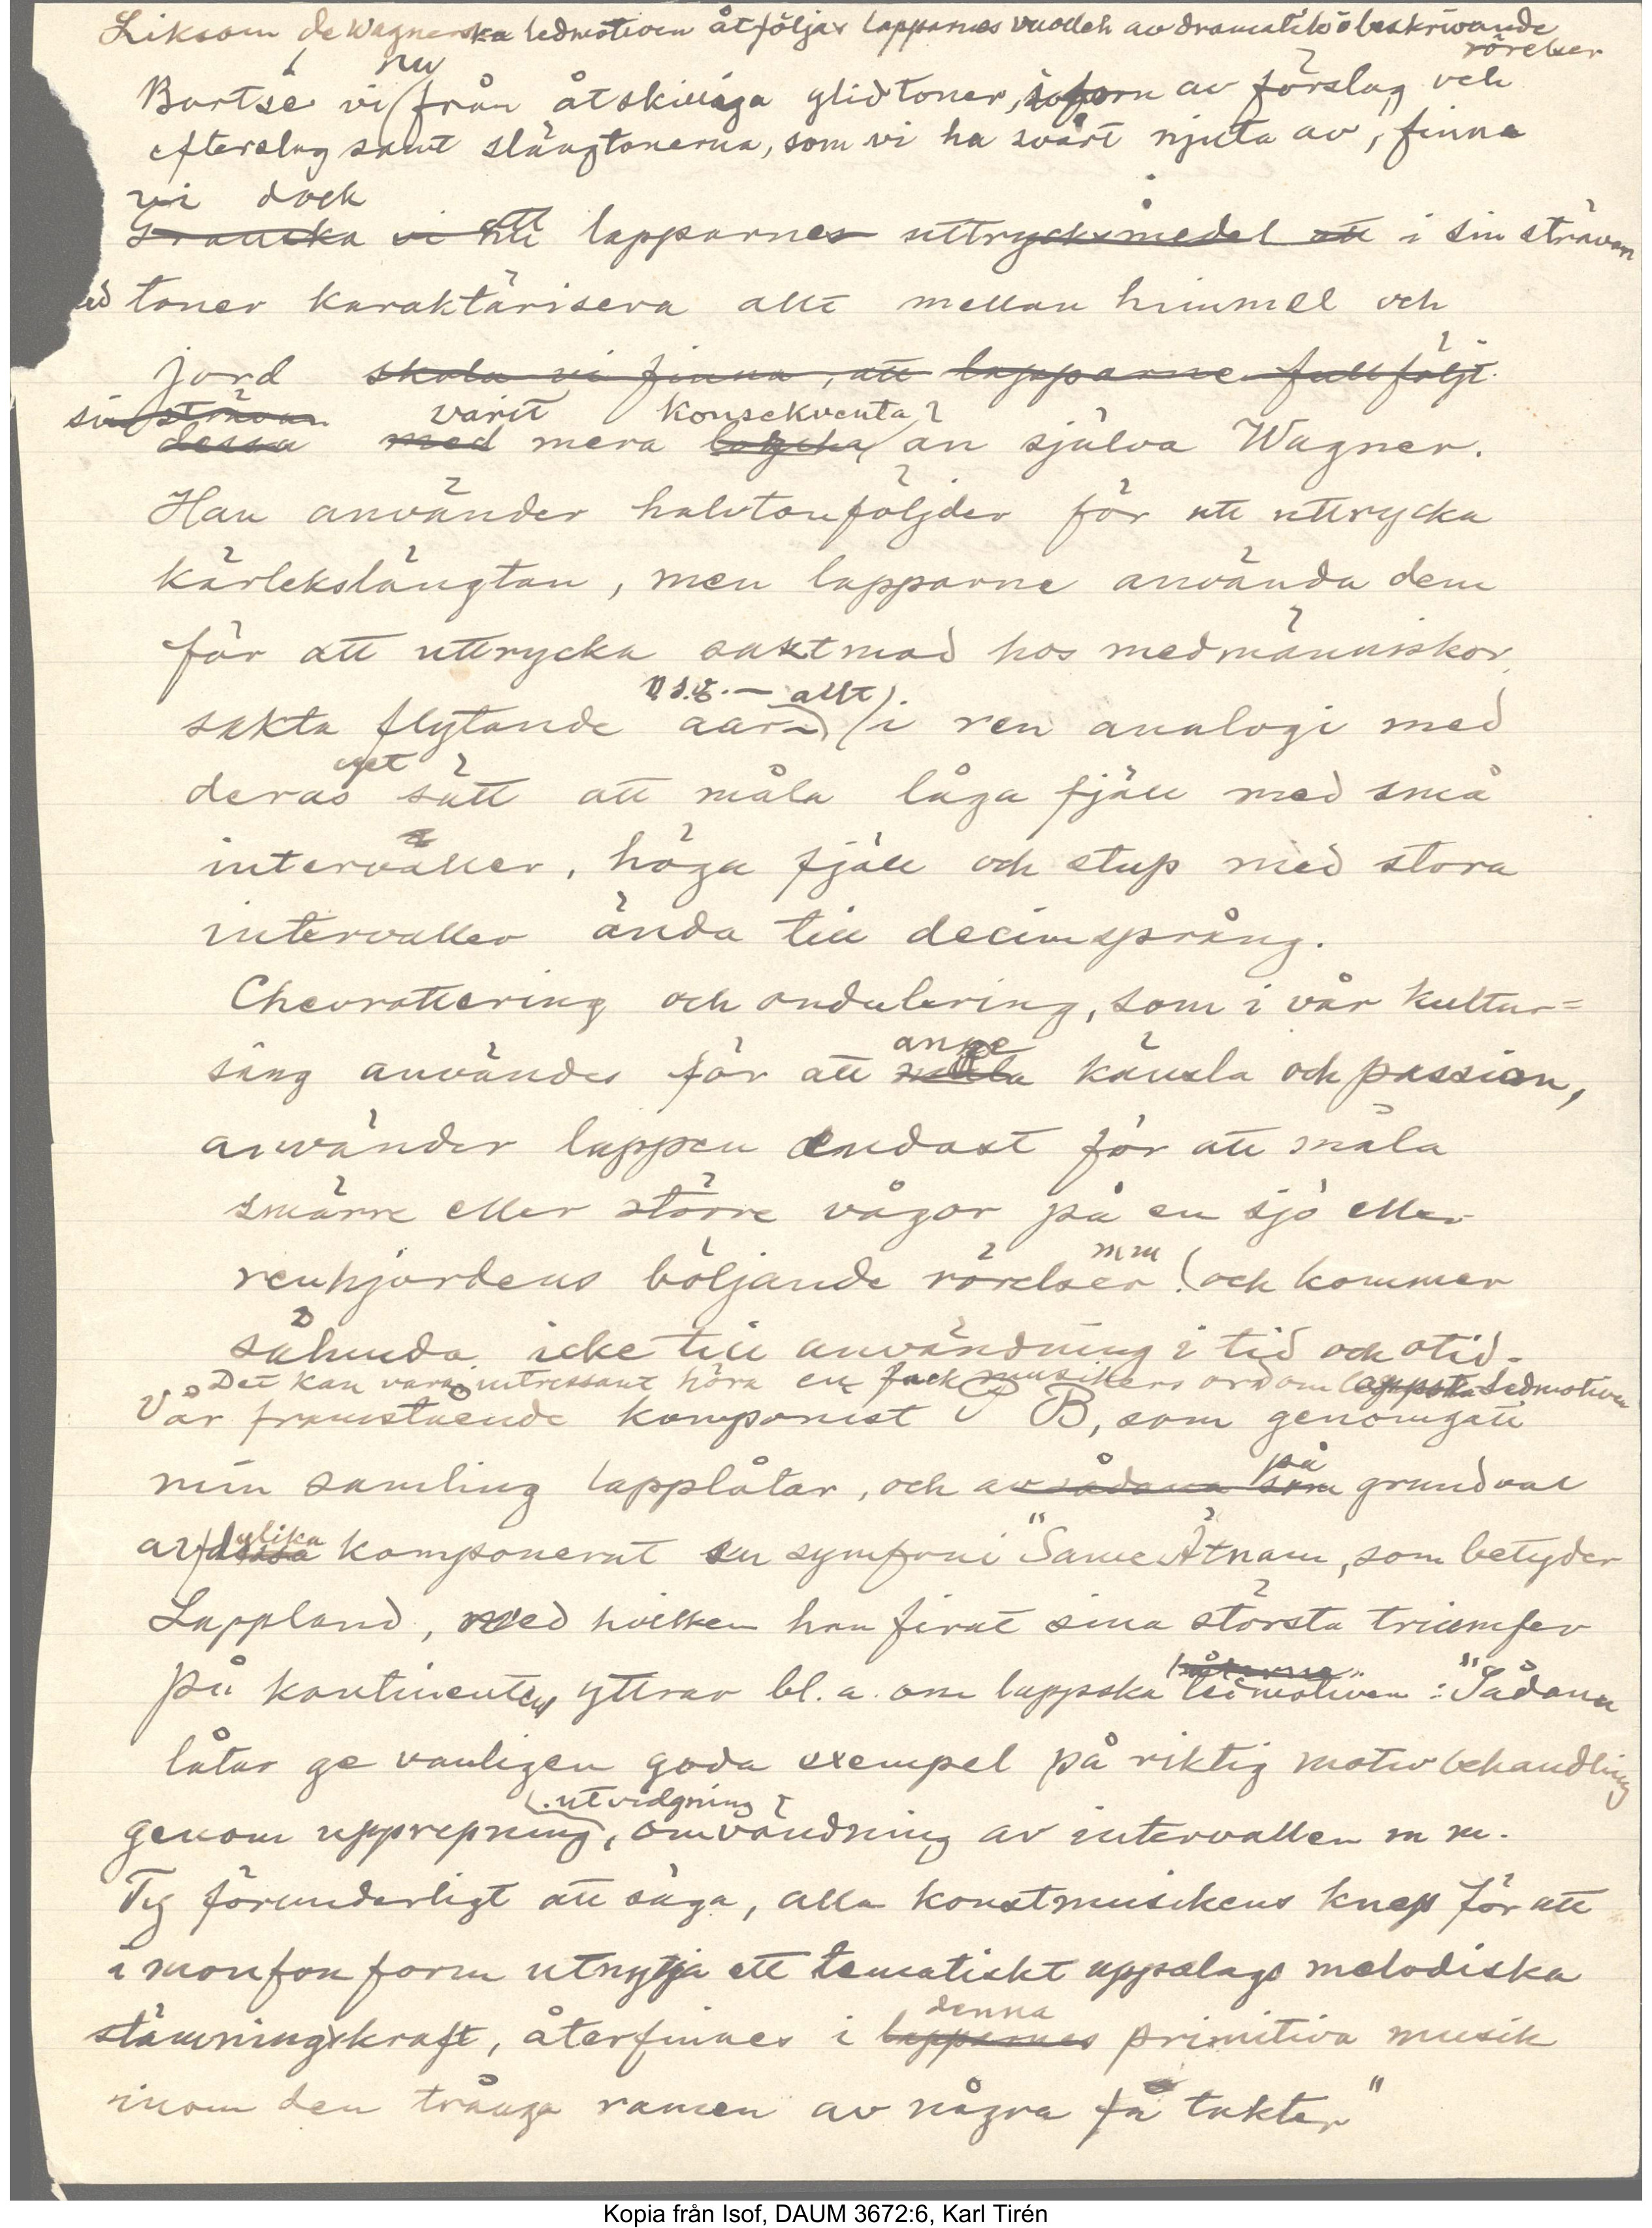 Liksom de Wagnerska ledmotiven åtföljas lapparnes vuolleh av dramatiskt beskrivande
rörelser
nu
Bortse vi från åtskilliga glidtoner, i form av förslag och
efterslag samt slängtonerna, som vi ha svårt njuta av, finna
vi dock
Granska vi att lapparnes uttrycksmedel att i sin strävan
med toner karaktärisera allt mellan himmel och
jord skola vi finna, att lapparne fullföljt
sin strävan varit konsekventa
dessa med mera logiska än själva Wagner.
Han använder halvtonföljder för att uttrycka
kärlekslängtan, men lapparne använda dem
för att uttrycka saktmod hos medmänniskor,
o.s.v. — allt
sakta flytande åar i ren analogi med
eget
deras sätt att måla låga fjäll med små
intervaller, höga fjäll och stup med stora
intervaller ända till decimsprång.
Chevrottering och ondulering, som i vår kultur=
ange
sång användes för att måla känsla och passion,
använder lappen endast för att måla
smärre eller större vågor på en sjö eller
mm
renhjordens böljande rörelser och kommer
sålunda icke till användning i tid och otid.
Det kan vara intressant höra en fackmusikers ord om lappska ledmotiven
Vår framstående komponist P B, som genomgått
på
min samling lapplåtar, och av sådana som grundval
dylika
av dessa komponerat en symfoni "Same Ätnam, som betyder
Lappland, med hvilken han firat sina största triumfer
låtarne
på kontinenten, yttrar bl.a. om lappska ledmotiven : "Sådana
låtar ge vanligen goda exempel på riktig motivbehandling
utvidgning
genom upprepning, omvändning av intervallen m m.
Ty förunderligt att säga, alla konstmusikens knep för att
i monfon form utnyttja ett tematiskt uppslags melodiska
denna
stämningskraft, återfinnes i lapparnes primitiva musik
inom den trånga ramen av några få takter"
Kopia från Isof, DAUM 3672:6, Karl Tirén